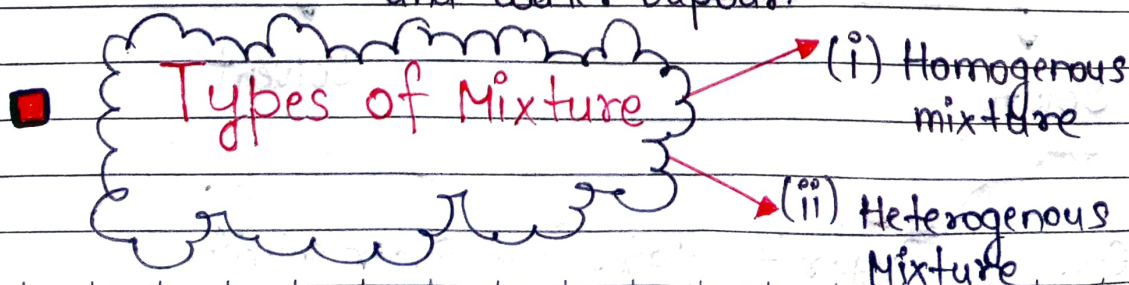 Types of Mixture
(i) Homogenous
mixture
(ii) Heterogenous
Mixture